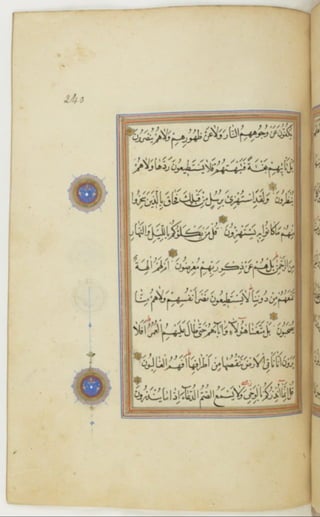 240
يكفون عن وجوههم النار ولا عن ظهورهم ولا هم ينصرون
بل تأتيهم بغتة فتبهتهم فلا يستطيعون ردها ولا هم
ينظرون ولقد استهزئ برسل من قبلك فحاق بالذين سخروا
منهم ما كانوا به يستهزؤن قل من يكلؤكم بالليل والنهار
من الرحمن بل هم عن ذكر ربهم معرضون أم لهم آلهة
تمنعهم من دوننا لا يستطيعون نصر أنفسهم ولا هم منا
يصحبون بل متعنا هؤلاء وآباءهم حتى طال عليهم العمر أفلا
يرون أنا نأتي الأرض ننقصها من أطرافها أفهم الغالبون
قل إنما أنذركم بالوحي ولا يسمع الصم الدعاء إذا ما ينذرون